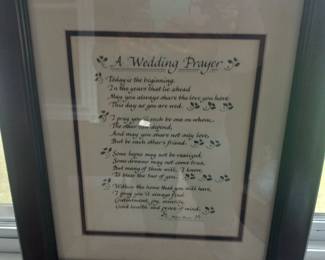 A Wedding Prayer
Today is the beginning.
In the years that lie ahead
May you always share the love you have
This day as you are wed.
I pray you'll each be one on whom
The other can depend,
And may you share not only love,
But be each other's friend.
Some hopes may not be realized,
Some dreams may not come true,
But many of them will, I know,
To bless the two of you.
Within the home that you will have,
I pray you'll always find
Contentment, joy,
Good health and peace of mind.